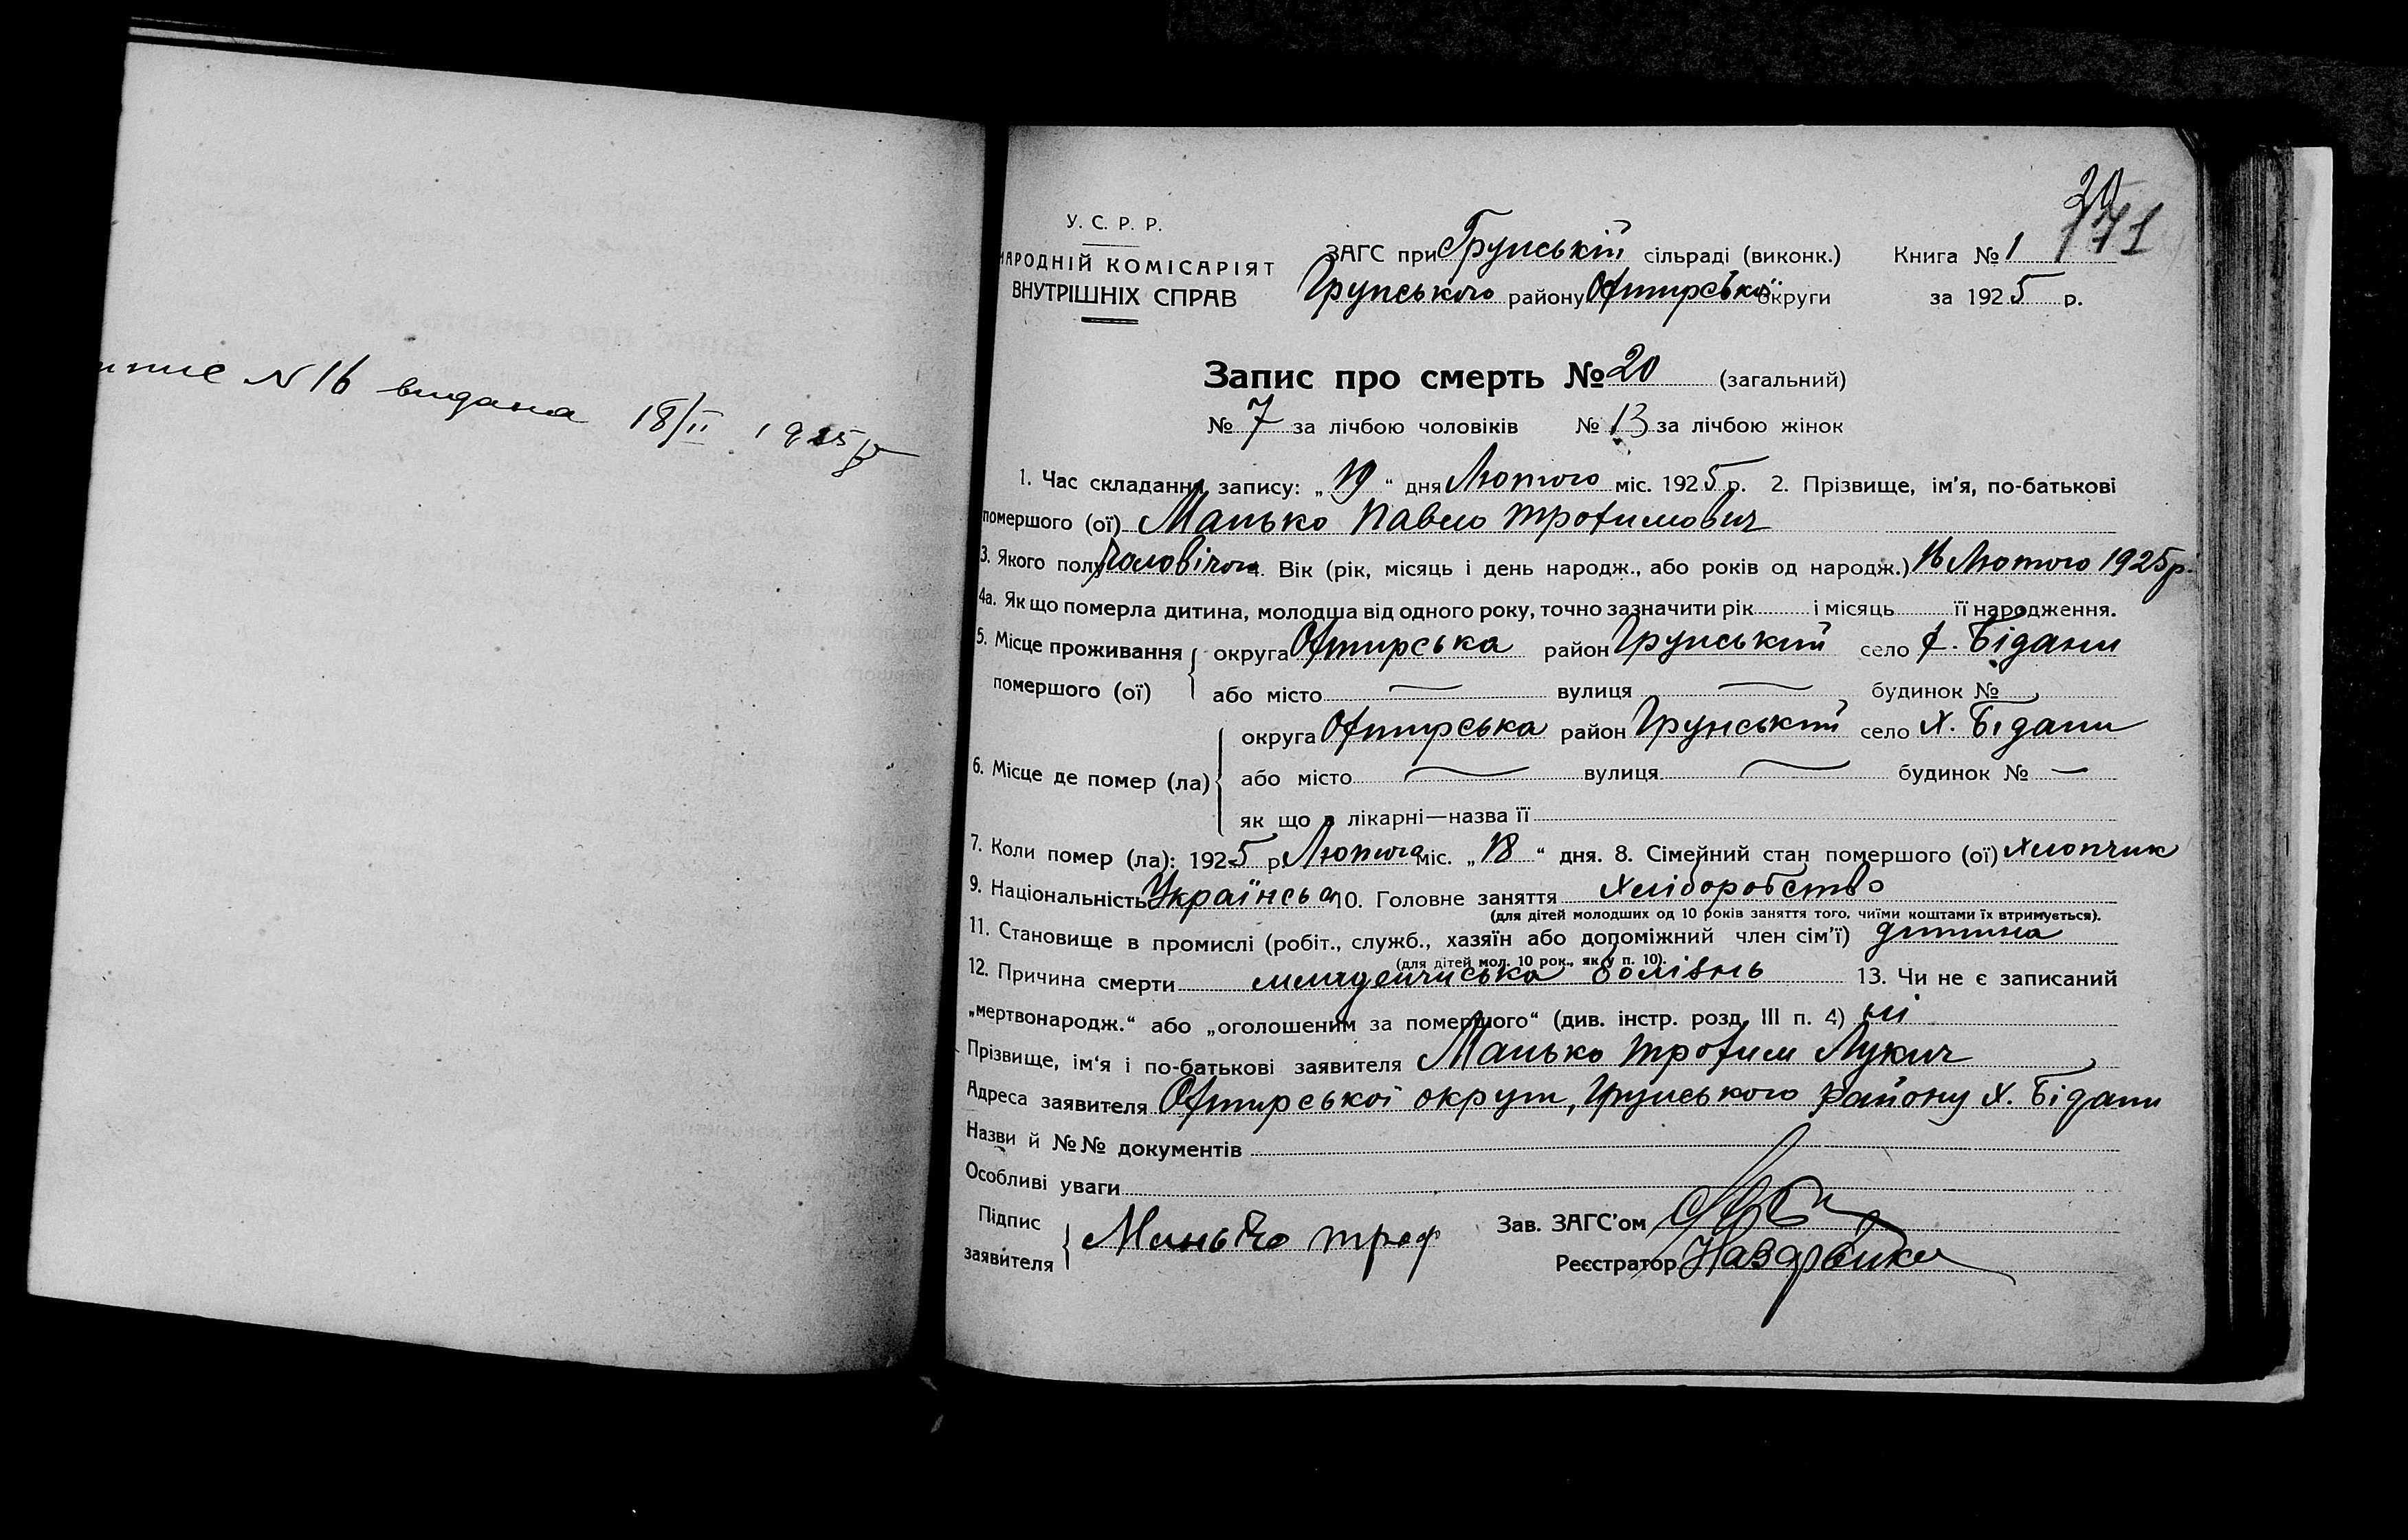 N 16 видана 18/II 1925 р
У. С. Р. Р.
НАРОДНІЙ КОМІСАРІЯТ
ВНУТРІШНІХ СПРАВ
ЗАГС при Грунській сільраді (виконк.) Книга № 1
Грунського району Охтирської округи за 1925 р.
Запис про смерть № 20 (загальний)
№ 7 за лічбою чоловіків № 13 за лічбою жінок
1. Час складання запису: „19“ дня Лютого міс. 1925 р. 2. Прізвище, ім'я, по-батькові
помершого (ої) Манько Павло Трофимович
3. Якого полу Чоловічого 4. Вік (рік, місяць і день народж., або років од народж.) 16 Лютого 1925 р.
4а. Як що померла дитина, молодша від одного року, точно зазначити рік і місяць її народження.
5. Місце проживання округа Охтирська район Грунський село х. Бідани
помершого (ої) або місто — вулиця — будинок №
округа Охтирська район Грунський село Х. Бідани
6. Місце де помер (ла) або місто — вулиця — будинок № —
як що в лікарні—назва її
7. Коли помер (ла): 1925 р. Лютого міс. „18“ дня. 8. Сімейний стан помершого (ої) хлопчик
9. Національність Українська 10. Головне заняття Хліборобство
(для дітей молодших од 10 років заняття того, чиїми коштами їх втримується).
11. Становище в промислі (робіт., служб., хазяїн або допоміжний член сім'ї) дитина
(для дітей мол. 10 рок., як у п. 10).
12. Причина смерти младенчиська болізнь 13. Чи не є записаний
„мертвонародж.“ або „оголошеним за помершого“ (див. інстр. розд. III п. 4) ні
Прізвище, ім'я і по-батькові заявителя Манько Трофим Лукич
Адреса заявителя Охтирської округи, Грунського району Х. Бідани
Назви й №№ документів
Особливі уваги
Підпис заявителя Манько Троф Зав. ЗАГС'ом
Реєстратор